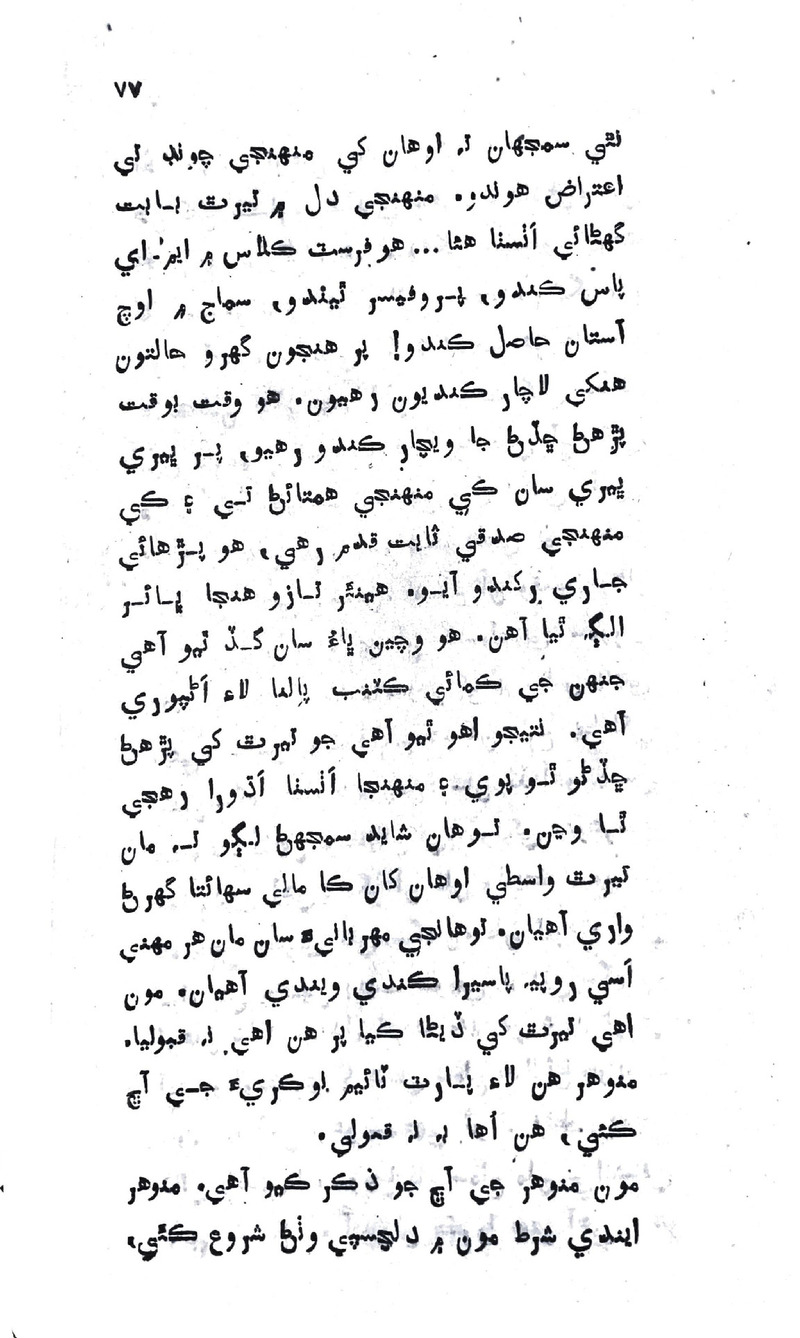 ٧٧
نٿي سمجهان تہ اوهان کي منهنجي چونڊ تي
اعتراض هوندو. منهنجي دل ۾ تيرٿ بابت
گهڻائي اُتسنا هئا... هو فرسٽ ڪلاس ۾ ايم. اي
پاس ڪندو، پروفيسر ٿيندو، سماج ۾ اوچ
آستان حاصل ڪندو! پر هنجون گهرو حالتون
هنکي لاچار ڪنديون رهيون. هو وقت بوقت
پڙهڻ ڇڏڻ جا ويچار ڪندو رهيو، پر ڀيري
ڀيري سان ڪي منهنجي همتائڻ تي ۽ ڪي
منهنجي صدقي ثابت قدم رهي، هو پڙهائي
جاري رکندو آيو. هينئر تازو هنجا ڀائر
الڳ ٿيا آهن. هو وچين ڀاءُ سان گڏ ٿيو آهي
جنهن جي ڪمائي ڪٽنب پالنا لاءِ اَڻپوري
آهي. نتيجو اهو ٿيو آهي جو تيرٿ کي پڙهڻ
ڇڏڻو ٿو پوي ۽ منهنجا اُتسنا اَڌورا رهجي
ٿا وڃن. توهان شايد سمجهڻ لڳو تہ مان
تيرٿ واسطي اوهان کان ڪا مالي سهائتا گهرڻ
واري آهيان. توهانجي مهربانيءَ سان مان هر مهني
اَسي روپيہ پاسيرا ڪندي ويندي آهيان. مون
اهي تيرٿ کي ڏيڻا ڪيا پر هن اهي نہ قبوليا.
منوهر هن لاءِ پارٽ ٽائيم نوڪريءَ جي آڇ
ڪئي، هن اُها بہ نہ قبولي.
مون منوهر جي آڇ جو ذڪر ڪيو آهي. منوهر
ايندي شرط مون ۾ دلچسپي وٺڻ شروع ڪئي،